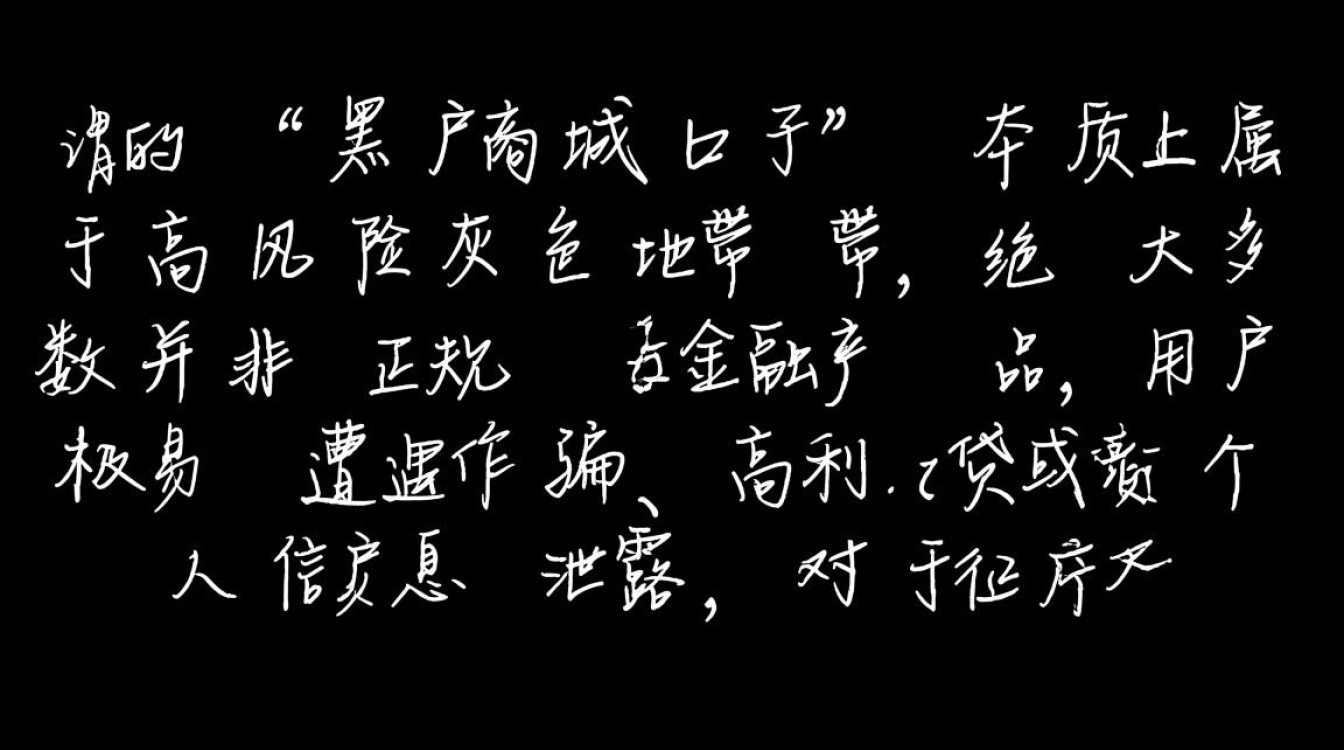 谓的 “黑户商城口子” 本质上属
于高风险灰色地带 带，绝 大多
数并非 正规 金融产 品，用户
极易 遭遇作骗、高利贷或 个
人信息 泄露，对于征